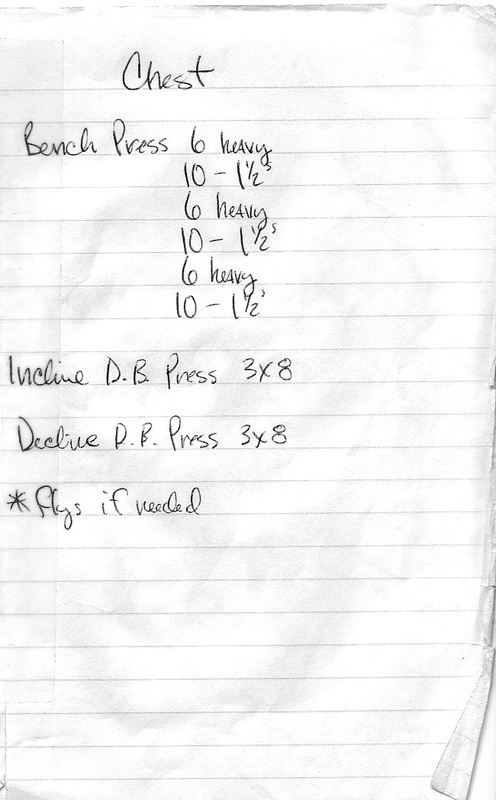 Chest
Bench Press 6 heavy
10 - 1½'s
6 heavy
10 - 1½'s
6 heavy
10 - 1½'s
Incline D.B. Press 3x8
Decline D.B. Press 3x8
*flys if needed